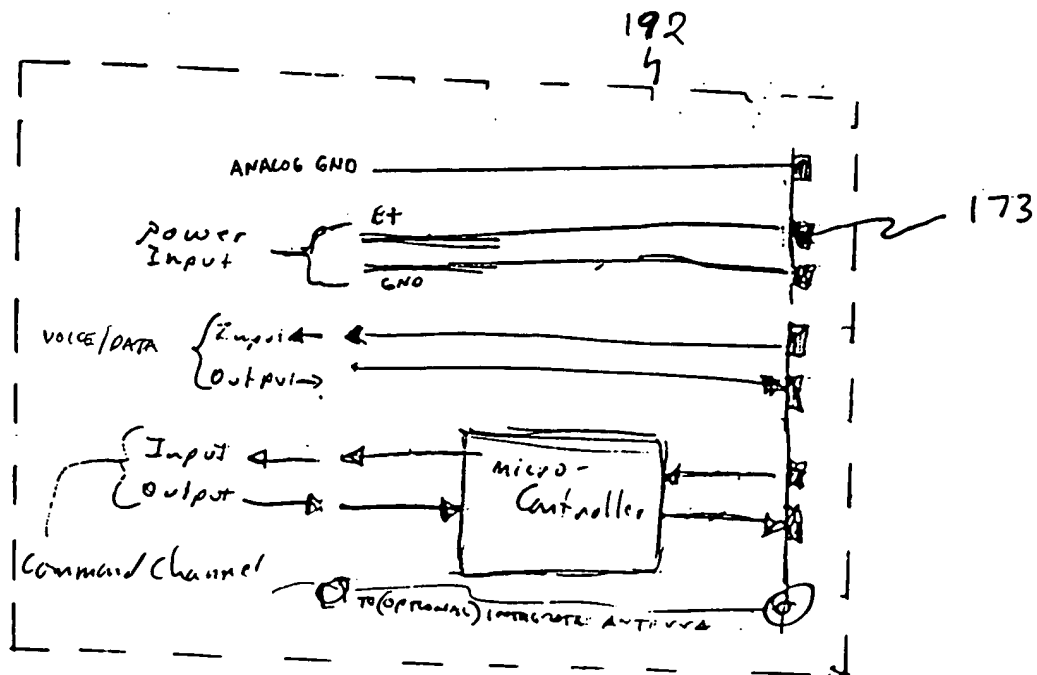 192
173
ANALOG GND
Power
Input
E+
GND
VOICE/DATA
Input
Output
Input
Output
Micro-
Controller
Command Channel
TO (OPTIONAL) INTEGRATE ANTENNA